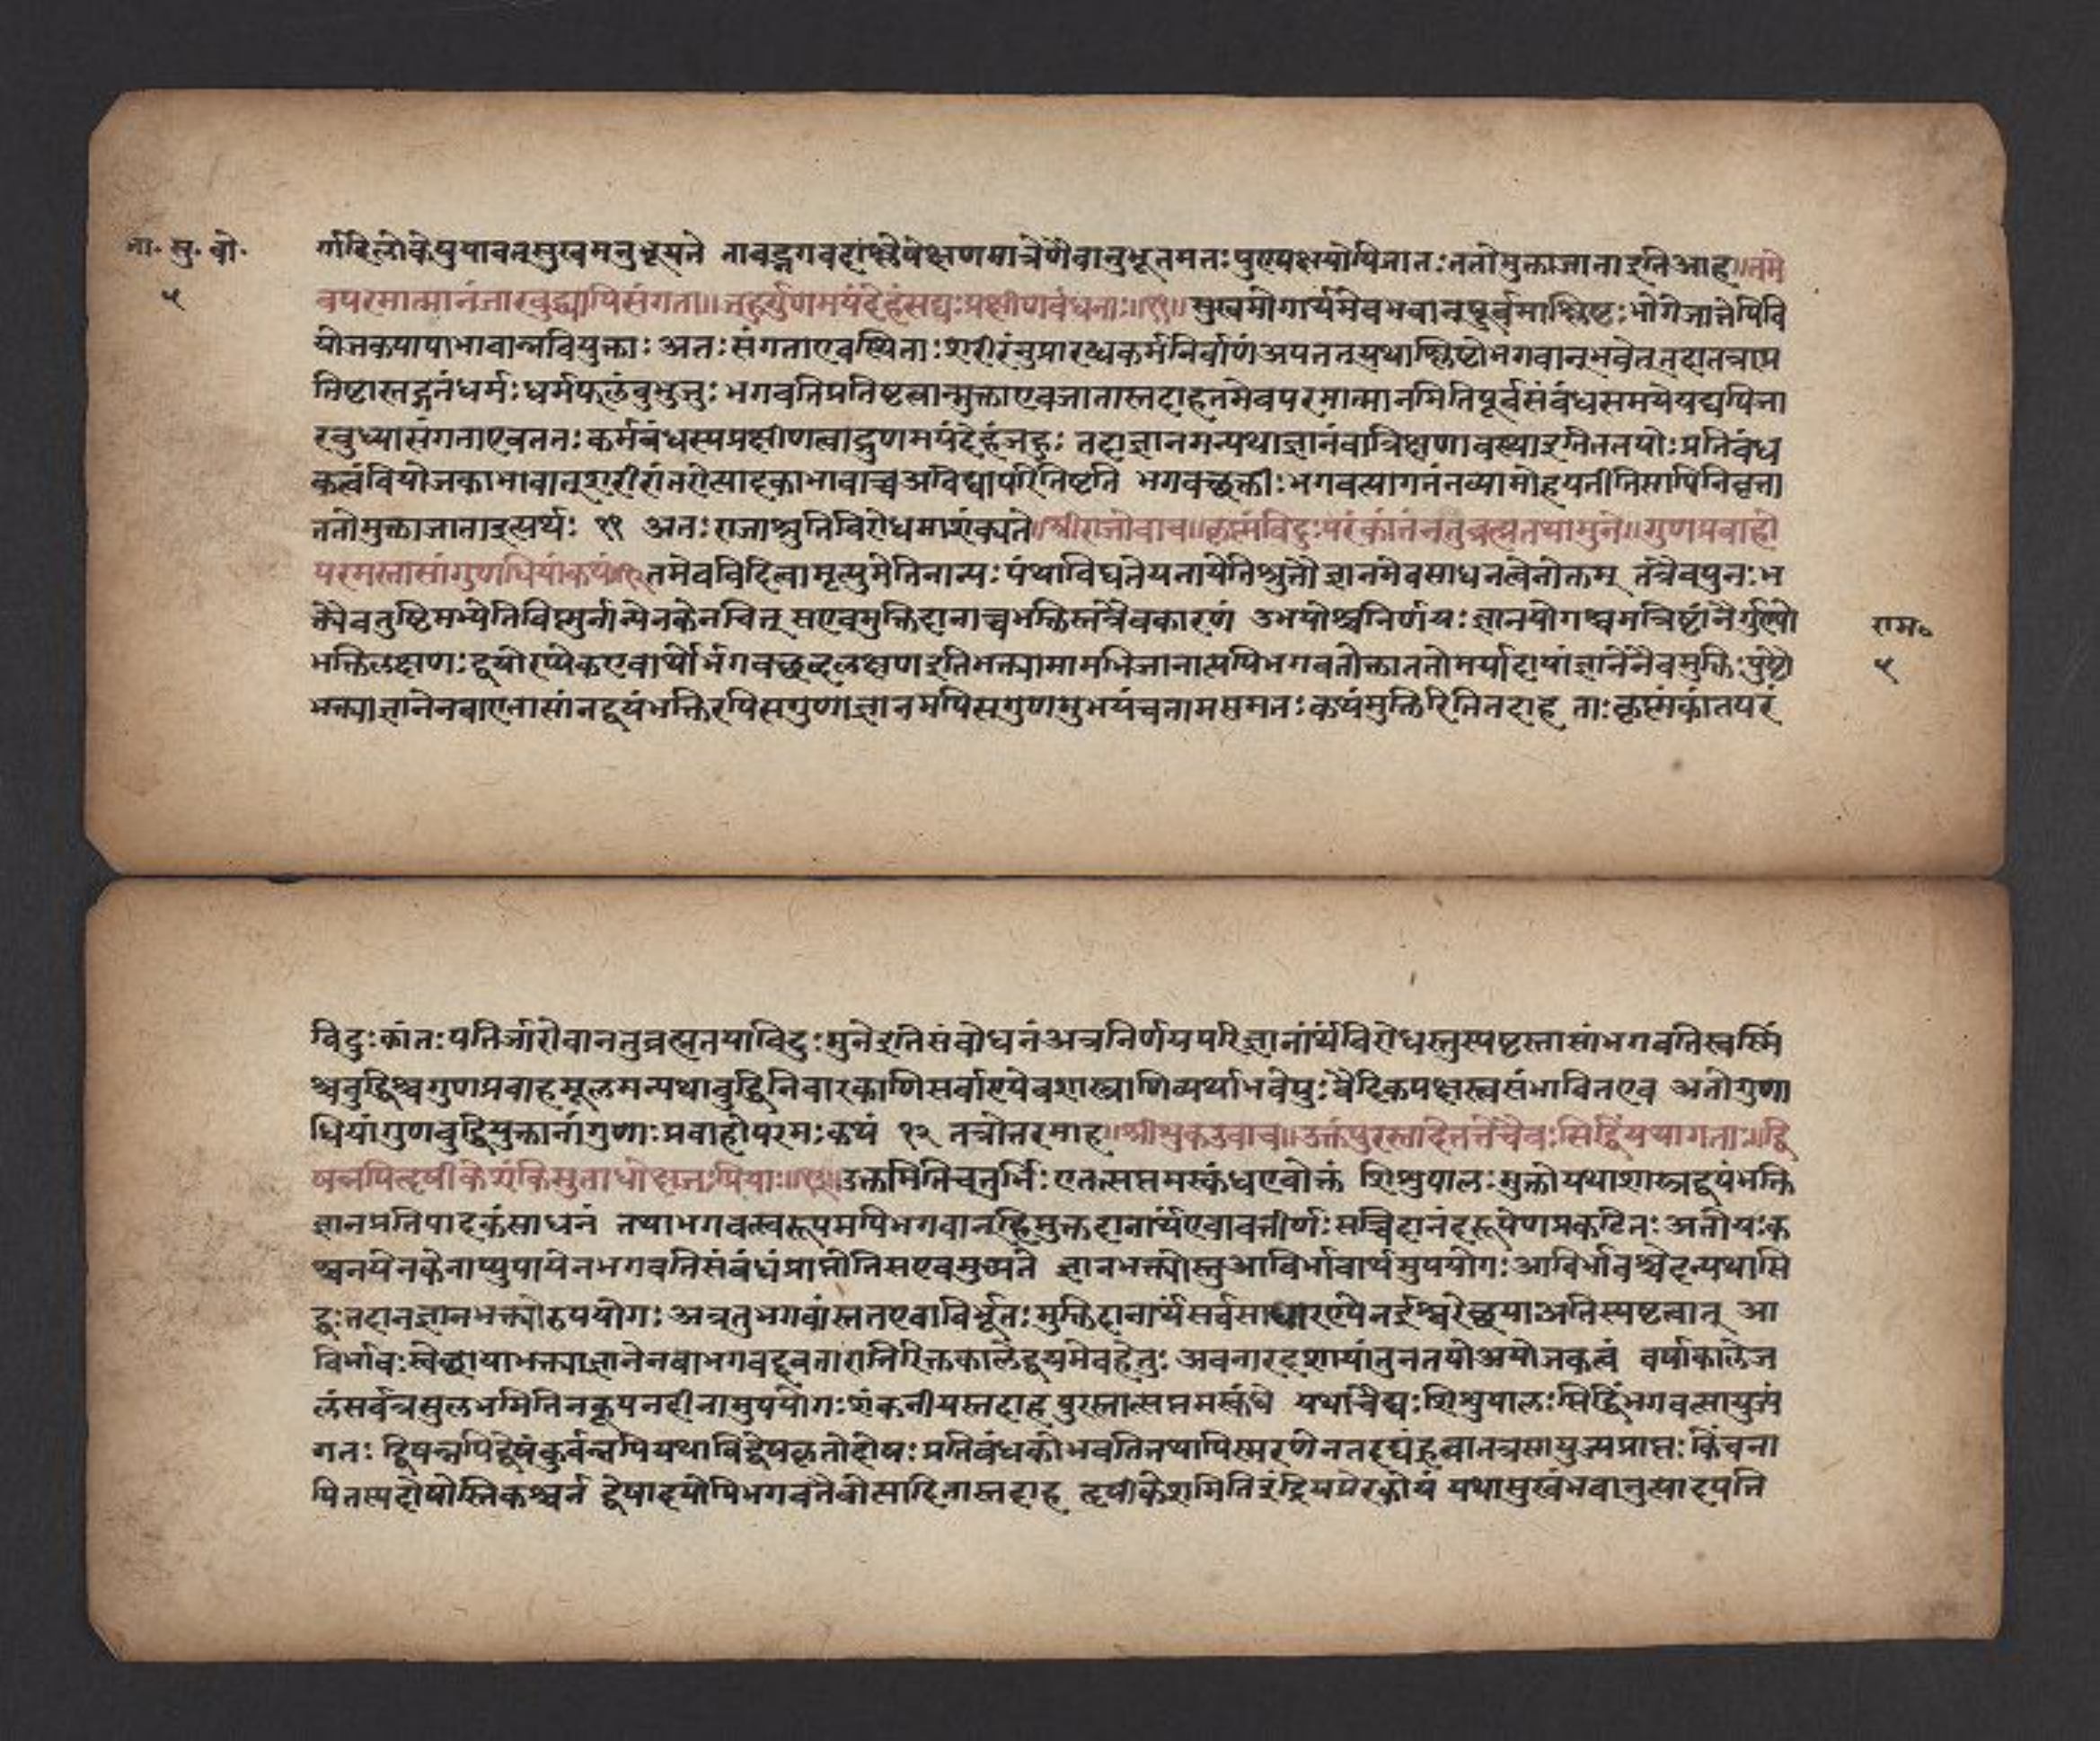 ता. सु. बो.
५
र्गादिलोकेषुयावत्सुखमनुभूयते तावद्भगवदाश्लेषेक्षणमात्रेणैवानुभूतमतः पुण्यक्षयोपिजातः ततोमुक्ताजाताइतिआह॥तमे
वपरमात्मानंजारबुद्ध्यापिसंगताः॥जहुर्गुणमयंदेहंसद्यःप्रक्षीणबंधनाः॥११॥सुखभोगार्थमेवभवान्पूर्वमाश्लिष्टः भोगेजातेपिवि
योजकपापाभावान्नवियुक्ताः अतःसंगताएवस्थिताः शरीरंतुप्रारब्धकर्मनिर्वाणंअपतत्यथाश्लिष्टोभगवान्भवेत्तदातत्राप्र
तिष्टास्तद्गतंधर्मः धर्मफलंबुभुजुः भगवतिप्रतिष्टत्वान्मुक्ताएवजातास्तदाहतमेवपरमात्मानमितिपूर्वसंबंधसमयेयद्यपिजा
रबुध्यासंगताएवततः कर्मबंधस्यप्रक्षीणत्वाद्गुणमयंदेहंजहुः तदाज्ञानमन्यथाज्ञानंवात्रिक्षणावस्थाइतितयोःप्रतिबंध
कत्वंवियोजकाभावात्शरीरांतरोत्पादकाभावाच्चअविद्यापरिनिष्टति भगवच्छक्तीः भगवत्यागतंनव्यामोहयतीतिसापिनिवृत्ता
ततोमुक्ताजाताइत्यर्थः ११ अतःराजाश्रुतिविरोधमाशंक्यते॥श्रीराजोवाच॥कृष्णंविदुःपरंकांतंनतुब्रह्मतयामुने॥गुणप्रवाहो
परमस्तासांगुणधियांकथं॥१२तमेवविदित्वामृत्युमेतिनान्यः पंथाविद्यतेयनायेतिश्रुतौ ज्ञानमेवसाधनत्वेनोक्तम् तत्रैवपुनःभ
क्त्यैवतुष्टिमभ्येतिविष्णुर्नान्येनकेनचित् सएवमुक्तिदाताच्चभक्तिस्तत्रैवकारणं उभयोश्चनिर्णयः ज्ञानयोगश्चमन्निष्टोनैर्गुण्यो
भक्तिलक्षणः द्वयोरप्येकएवार्थोभगवच्छब्दलक्षणइतिभक्त्यामामभिजानात्यपिभगवतोक्ताततोमर्यादायांज्ञानेनैवमुक्तिःपुष्टौ
भक्त्याज्ञानेनवाएतासांनद्वयंभक्तिरपिसगुणाज्ञानमपिसगुणमुभयंचनामसमतः कथंमुक्तिरितितदाह ताःकृष्णंकांतंपरं
राम०
५
विदुः कांतःपतिर्जारोवानतुब्रह्मतयाविदुः मुनेइतिसंबोधनंअत्रनिर्णयपरिज्ञानार्थंविरोधस्तुस्पष्टस्तासांभगवतिस्वस्मिं
श्चबुद्धिश्चगुणप्रवाहमूलमन्यथाबुद्धिनिवारकाणिसर्वाण्येवशास्त्राणिव्यर्थाभवेयुः वैदिकपक्षस्त्वसंभावितएव अतोगुणा
धियांगुणबुद्धियुक्तानांगुणाः प्रवाहोपरमः कथं १२ तत्रोत्तरमाह॥श्रीशुकउवाच॥उक्तंपुरस्तादेतत्तेचैद्यः सिद्धिंयथागतः॥द्वि
षन्नपिहृषीकेशंकिमुताधोक्षजप्रियाः॥१३॥उक्तमितिचतुर्भिः एतत्सप्तमस्कंधएवोक्तं शिशुपालः मुक्तोयथाशास्त्रद्वयंभक्ति
ज्ञानप्रतिपादकंसाधनं तथाभगवत्स्वरूपमपिभगवान्हिमुक्तदानार्थएवावतीर्णः सच्चिदानंदरूपेणप्रकटितः अतोयःक
श्चनयेनकेनाप्युपायेनभगवतिसंबंधंप्राप्नोतिसएवमुच्यते ज्ञानभक्त्योस्तुआविर्भावार्थमुपयोगः आविर्भावश्चेदन्यथासि
द्धः तदानज्ञानभक्त्योरुपयोगः अत्रतुभगवांस्ततएवाविर्भूतः मुक्तिदानार्थंसर्वसाधारण्येनईश्वरेच्छयाःअतिस्पष्टत्वात् आ
विर्भावः स्वेच्छयाभक्त्याज्ञानेनवाभगवदवतारातिरिक्तकालेद्वयमेवहेतुः अवतारदशायांतुनतयोःप्रयोजकत्वं वर्षाकालेज
लंसर्वत्रसुलभमितिनकूपनदीनामुपयोगः शंकनीयस्तदाह पुरस्तात्सप्तमस्कंधे यथाचैद्यः शिशुपालः सिद्धिंभगवत्सायुज्यं
गतः द्विषन्नपिद्वेषंकुर्वन्नपियथाविद्वेषकृतोदोषः प्रतिबंधकोभवतितथापिस्मरणेनतदघंहत्वातत्रसायुज्यप्राप्तः किंचना
पितस्यदोषोस्तिकश्चन द्वेषादयोपिभगवतैवोत्पादितास्तदाह हृषीकेशमितिइंद्रियप्रेरकोयं यथासुखंभवानुत्पादयति